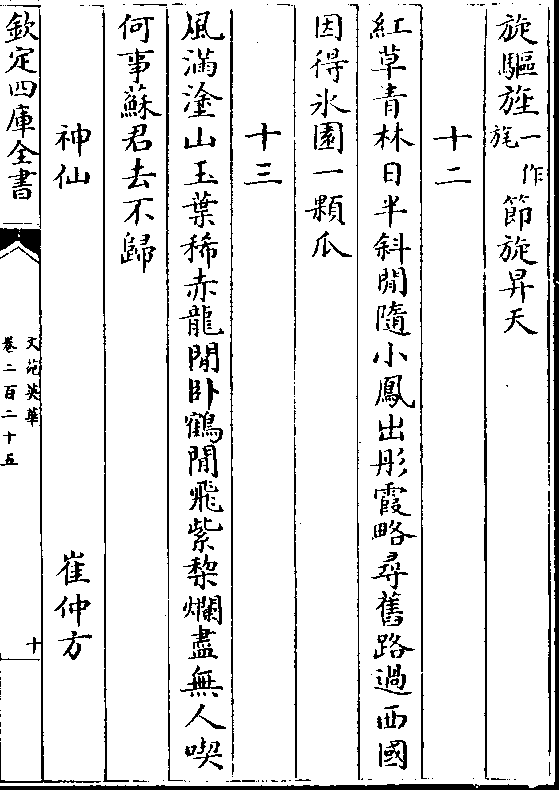 旋驅旌一作旄節旋昇天
十二
紅草青林日半斜閒隨小鳳出彤霞略尋舊路過西國
因得氷園一顆瓜
十三
風滿塗山玉葉稀赤龍閒卧鶴閒飛紫棃爛盡無人喫
何事蘇君去不歸
神仙 崔仲方
欽定四庫全書
文苑英華
卷二百二十五
十